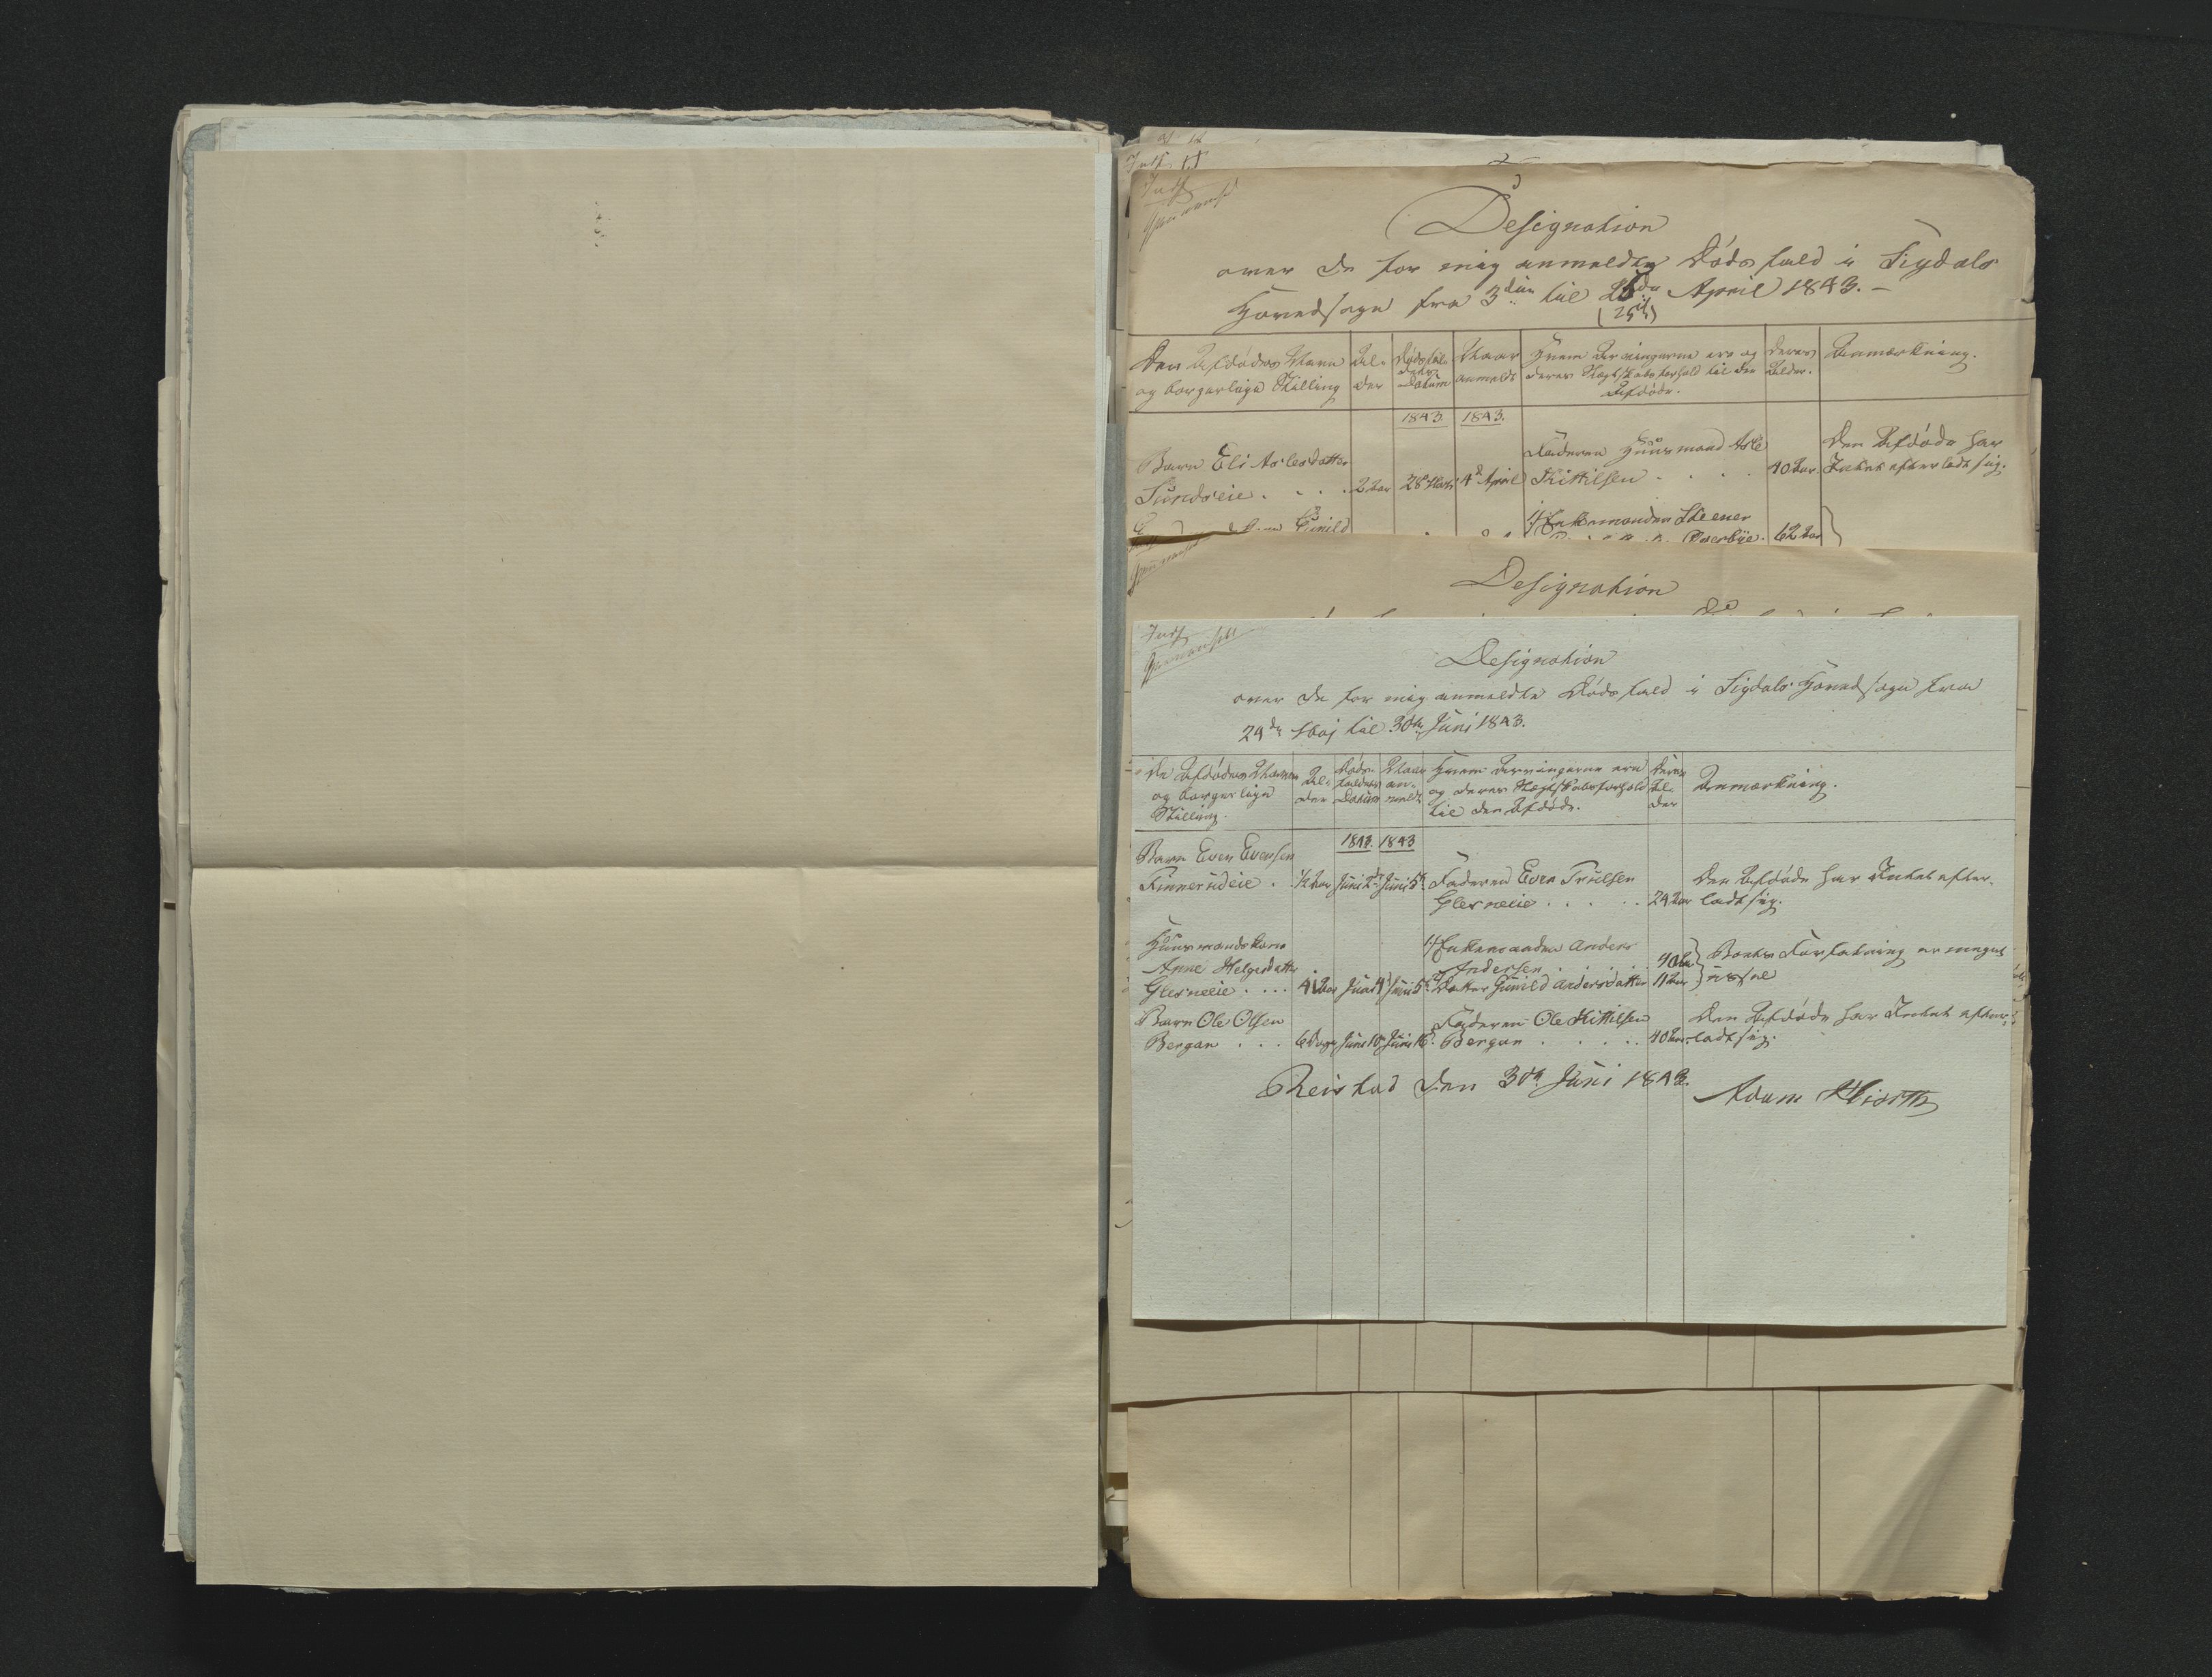 Designation
over de for mig anmeldte Dødsfald i Sigdals
Hovedsogn fra 3die til April 1843. –
(25de)
Den Afdødes Navn
og borgerlige Stilling
Al-
der
Dødsfal-
dets
Datum
Naar
anmeldt
Hvem Arvingerne ere og
deres Slægtskabsforhold til den
Afdøde.
Deres
Alder.
Anmærkning.
1843. 1843.
Barn Eli Aslesdatter
Sundseie . . . . 2 Aar 28de Marts 4de April
Faderen Huusmand Asle
Kittilsen . . . . 40 Aar.
Den Afdøde har
Intet efterladt sig.
Gunild
1/ Enkemanden Steener
Overbye. 62 Aar
Designation
Indf
Designation
over de for mig anmeldte Dødsfald i Sigdals Hovedsogn fra
29de Maj til 30te Juni 1843.
De Afdødes Navne
og borgerlige
Stilling.
Al-
der
Døds-
faldets
Datum
Naar
an-
meldt
Hvem Arvingerne ere
og deres Slægtskabsforhold
til den Afdøde.
Deres
Al-
der
Anmærkning.
1843. 1843
Barn Even Evensen
Finnerudeie . ½ Aar Juni 2de Juni 5te
Faderen Even Truelsen
Glesneeie . . . . . 24 Aar
Den Afdøde har Intet efter-
ladt sig.
Huusmandskone
Anne Helgesdatter
Glesneeie . . . . 41 Aar Juni 4de Juni 5te
1/ Enkemanden Anders
Andersen . . . . 40 Aar
2/ Datter Gunild Andersdatter 11 Aar
Boets Forfatning er meget
ussel
Barn Ole Olsen
Bergan . . . 6 Dage Juni 10de Juni 16de
Faderen Ole Kittilsen
Bergan . . . . . 40 Aar.
Den Afdøde har Intet efter-
ladt sig.
Reistad den 30te Juni 1843.
Adam Hiorth